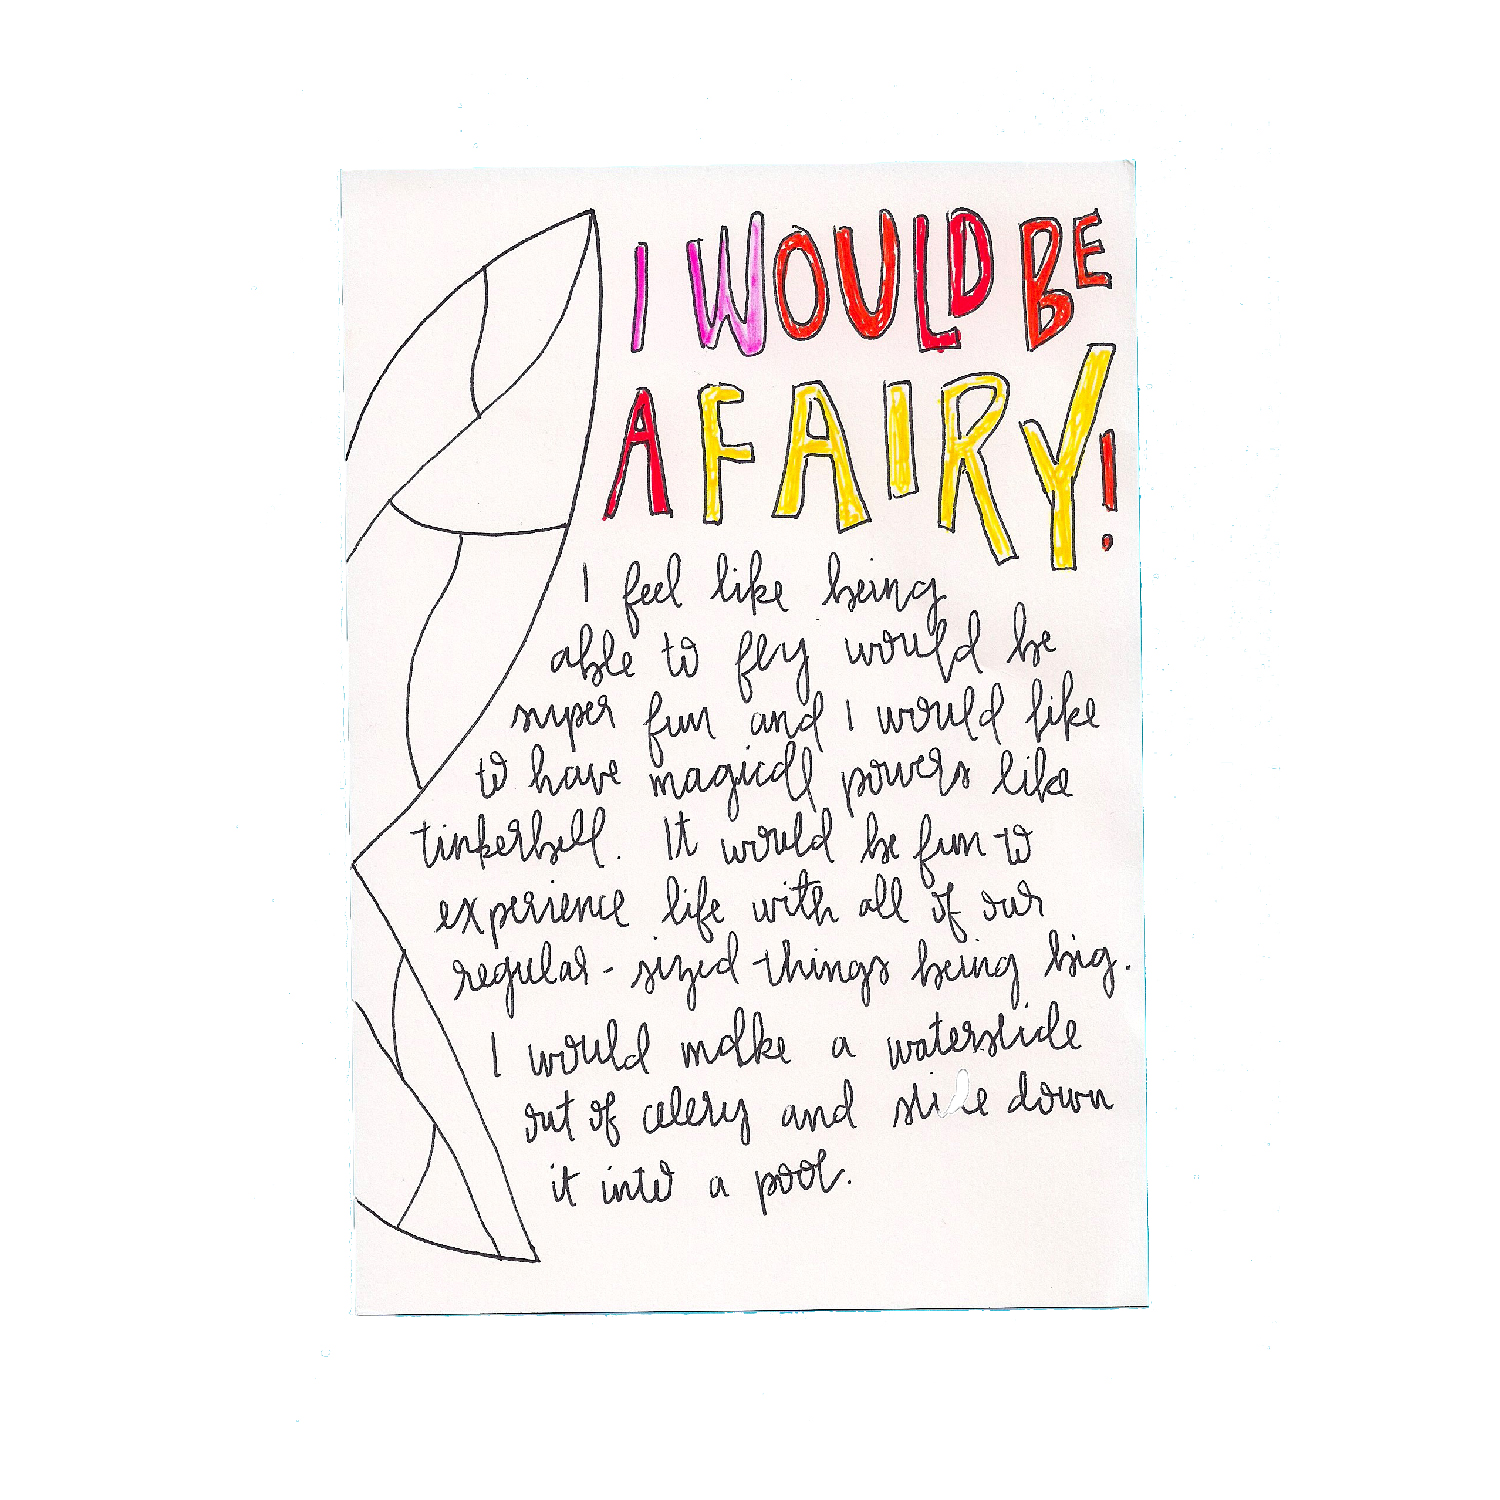 I WOULD BE
A FAIRY!
I feel like being
able to fly would be
super fun and I would like
to have magical powers like
tinkerbell. It would be fun to
experience life with all of our
regular-sized things being big.
I would make a waterslide
out of celery and slide down
it into a pool.